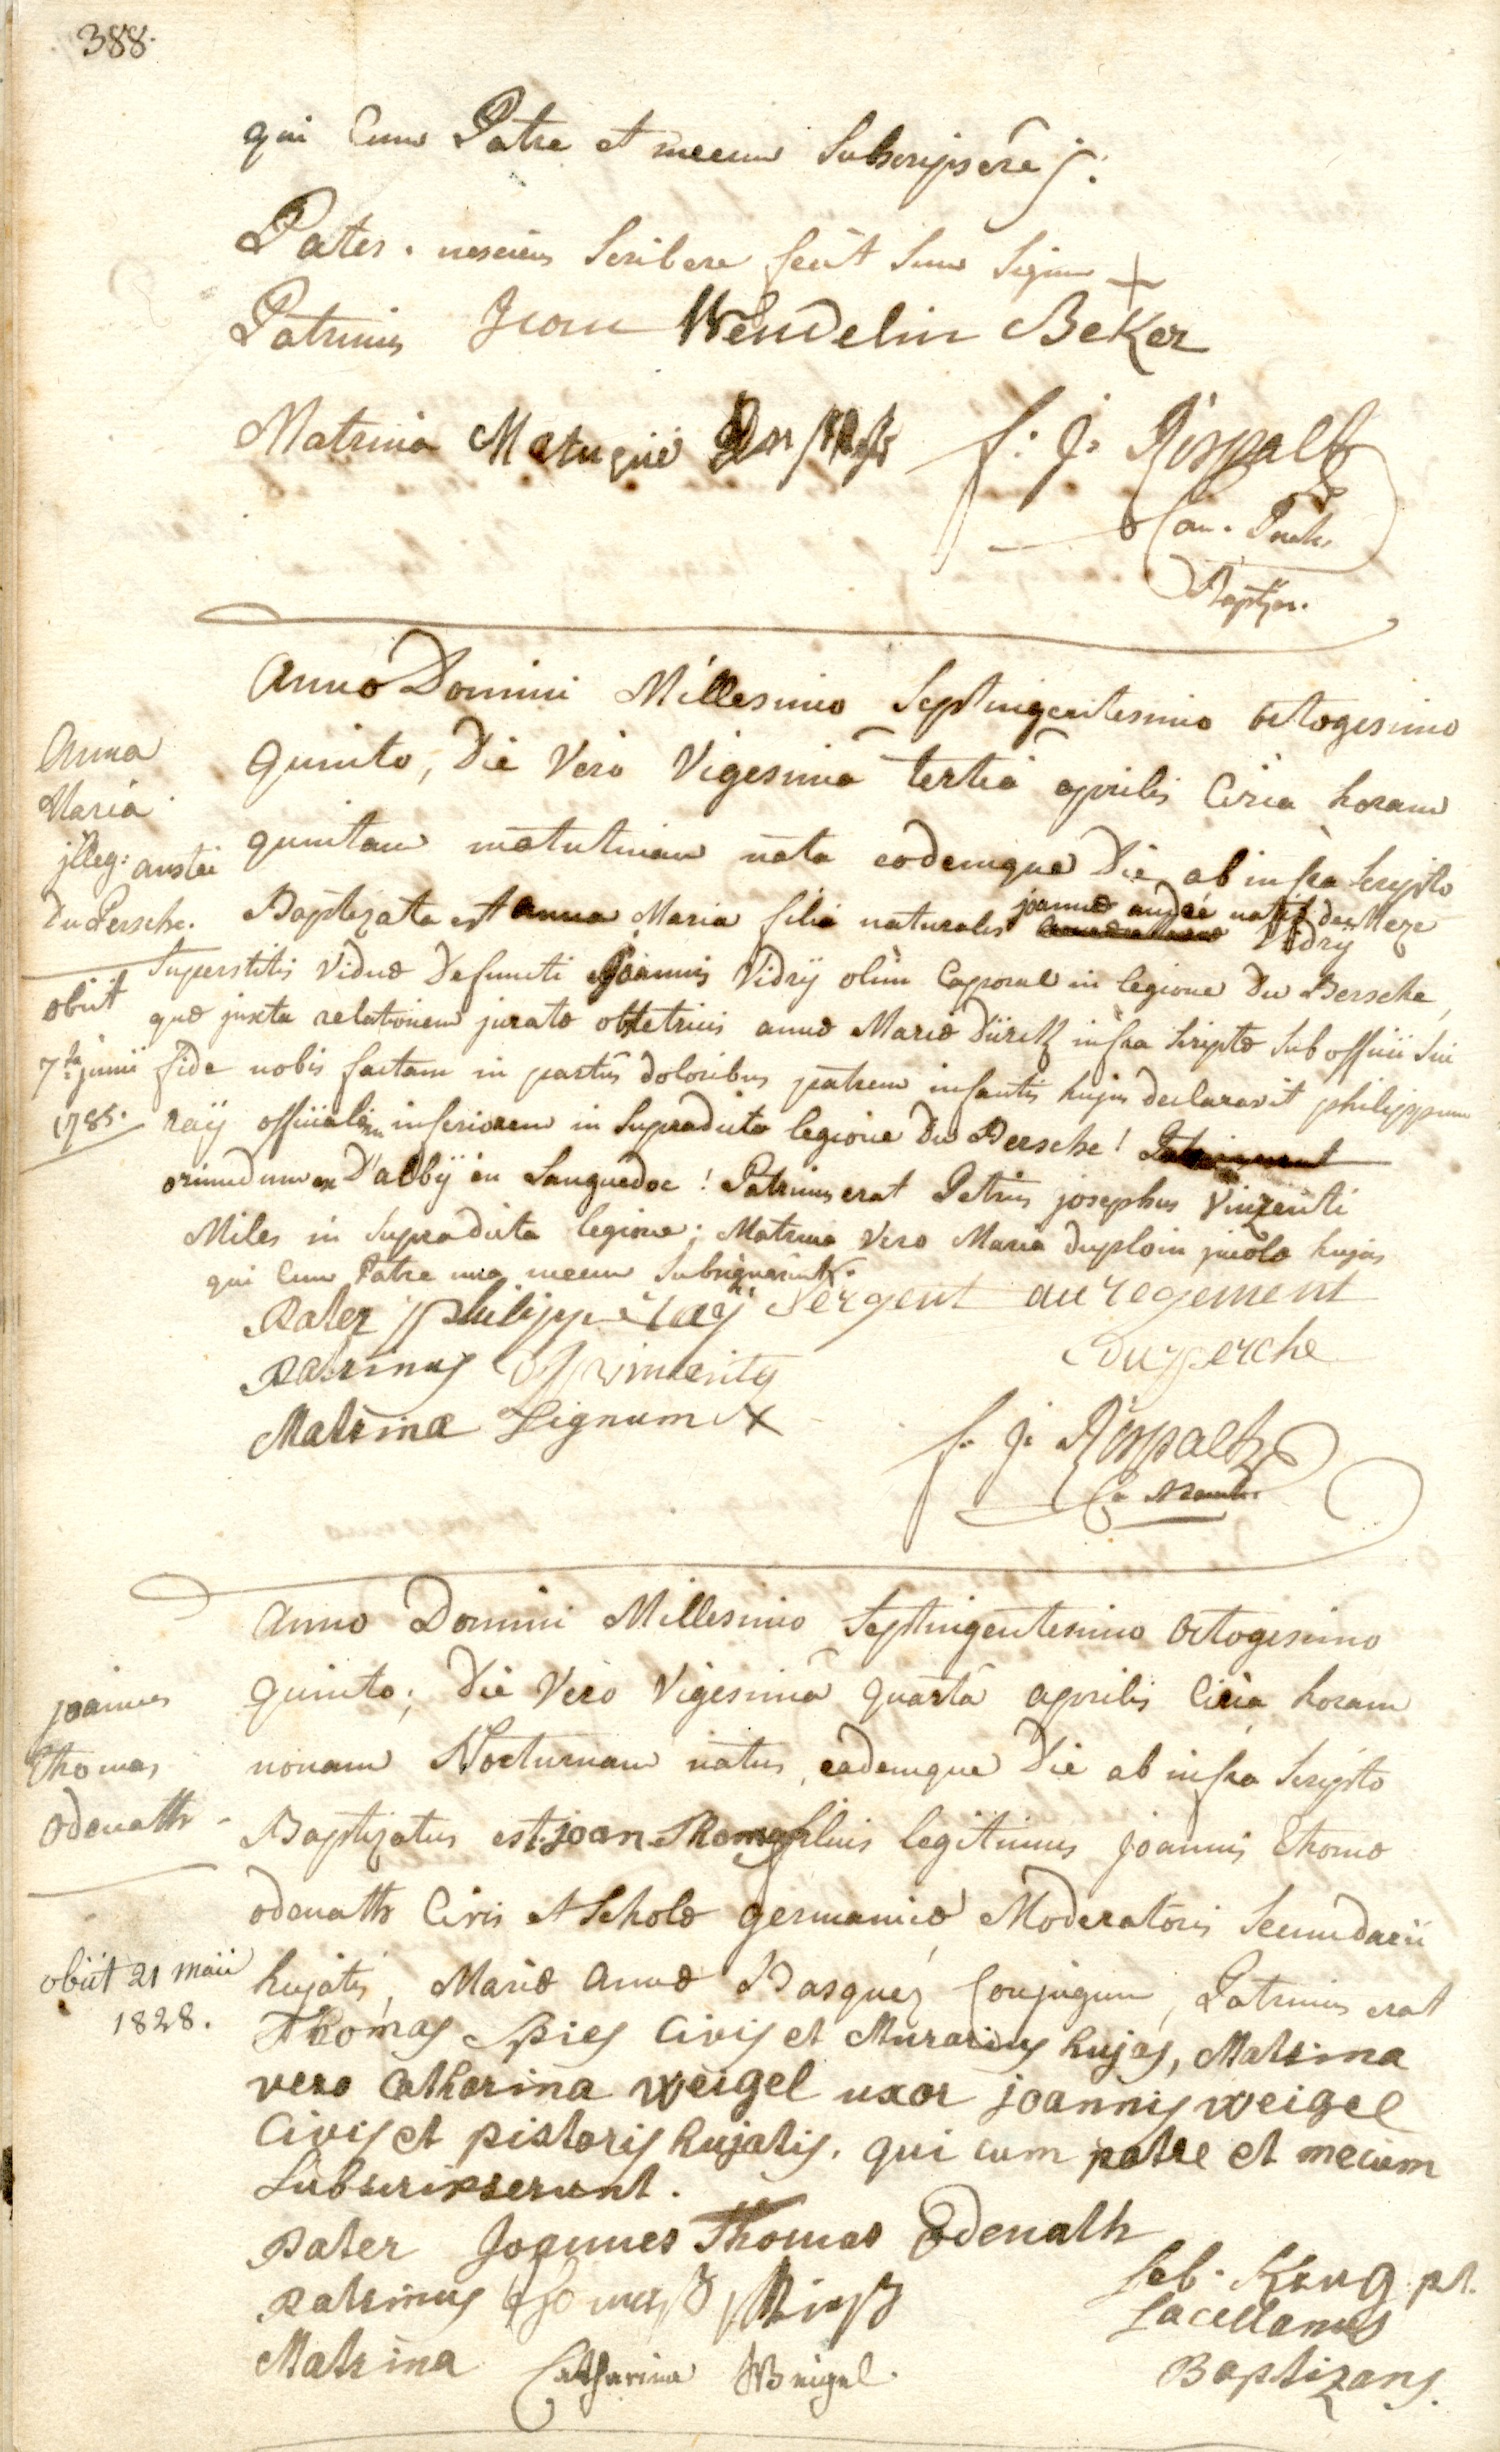 388.
qui Cum Patre et mecum Subscripsere f:
Pater. nesciens Scribere fecit Suum Signum +
Patrinus Jean Wendelin BeKer
Matrina
f: j. Rispalt
Can. Paroh.
Baptizans.
Anno Domini Millesimo Septingentesimo octogesimo
Quinto, Die Vero Vigesima tertia aprilis Circa horam
quintam matutinam nata eodemque Die ab infra Scripto
Baptizata est anna Maria filia naturalis joannae andré natif de Meze Vidry
Superstitis Viduae Defuncti Joannis Vidrÿ olim Caporal in legione Du Bersche,
quae juxta relationem juratae obstetricis annae Mariae Dürck infra Scriptae Sub officii Sui
fide nobis factam in partus doloribus patrem infantis hujus declaravit philippum
raÿ officialem inferiorem in Supradicta legione Du Bersche!
oriundum ex D'albÿ en Languedoc! Patrinus erat Petrus josephus Vinzenti
Miles in Supradicta legione; Matrina Vero Maria duploin incola hujas
qui Cum Patre una mecum Subsignarunt.
Anna
Maria
jlleg: anstei
Du Persche.
obiit
7ma junii
1785.
Pater philippe raÿ Sergent au regement
Duperche
Patrinus vincenty
Matrinae Signum X
f: j. Rispalt
Ca Paroh.
Anno Domini Millesimo Septingentesimo octogesimo
Quinto; Die Vero Vigesima Quarta aprilis Circa horam
nonam Nocturnam natus, eademque Die ab infra Scripto
Baptizatus est joan Thomas filius legitimus joannis Thomae
odenath Civis et Scholae germanicae Moderatoris Secundarii
hujatis, Mariae Annae Basquez Conjugum, Patrinus erat
Thomas Spies Civis et Murarius hujas, Matrina
vero Catharina weigel uxor joannis weigel
Civis et pistoris hujatis. qui cum patre et mecum
Subscripserunt.
joannes
Thomas
odenath
obiit 21 maii
1828.
Pater Joannes Thomas Odenath
Patrinus Thomas Spies
Matrina Catharina Weigel.
Seb. King pt.
Sacellanus
Baptizans.